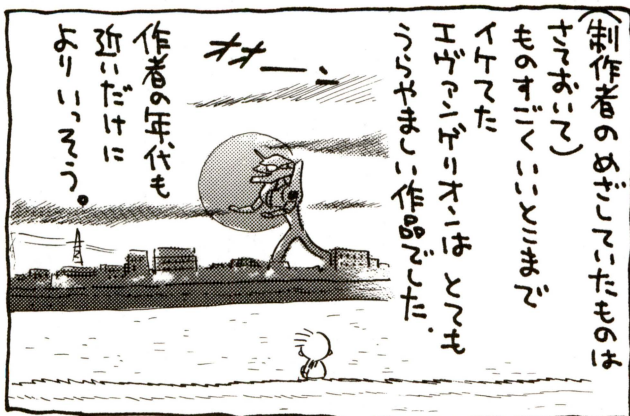 (制作者のめざしていたものは
さておいて)
ものすごくいいとこまで
イケてた
エヴァンゲリオンは とても
うらやましい作品でした.
オオーン
作者の年代も
近いだけに
よりいっそう。